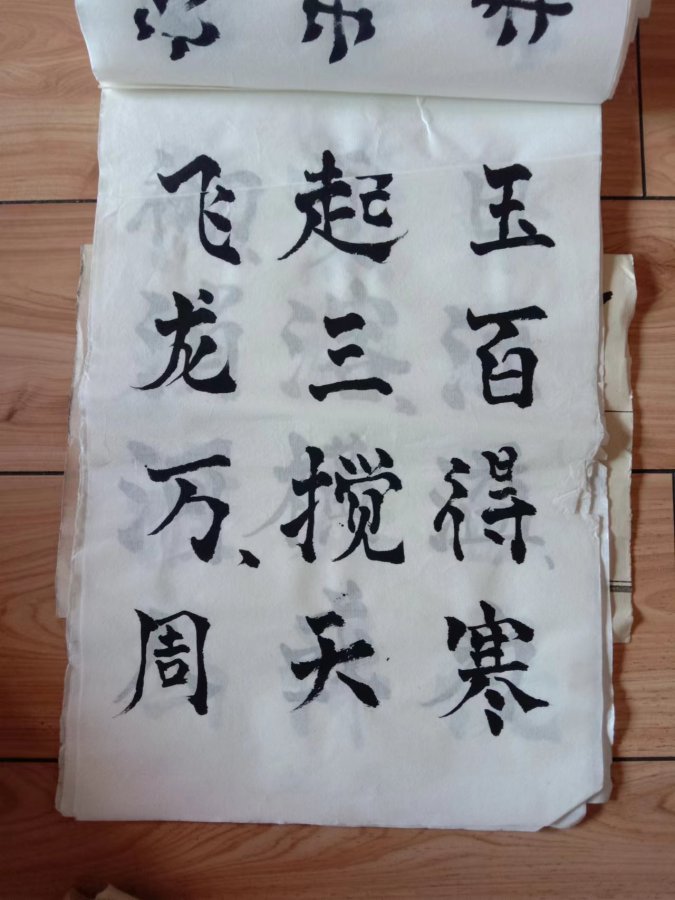 飞起玉
龙三百
万、搅得
周天寒